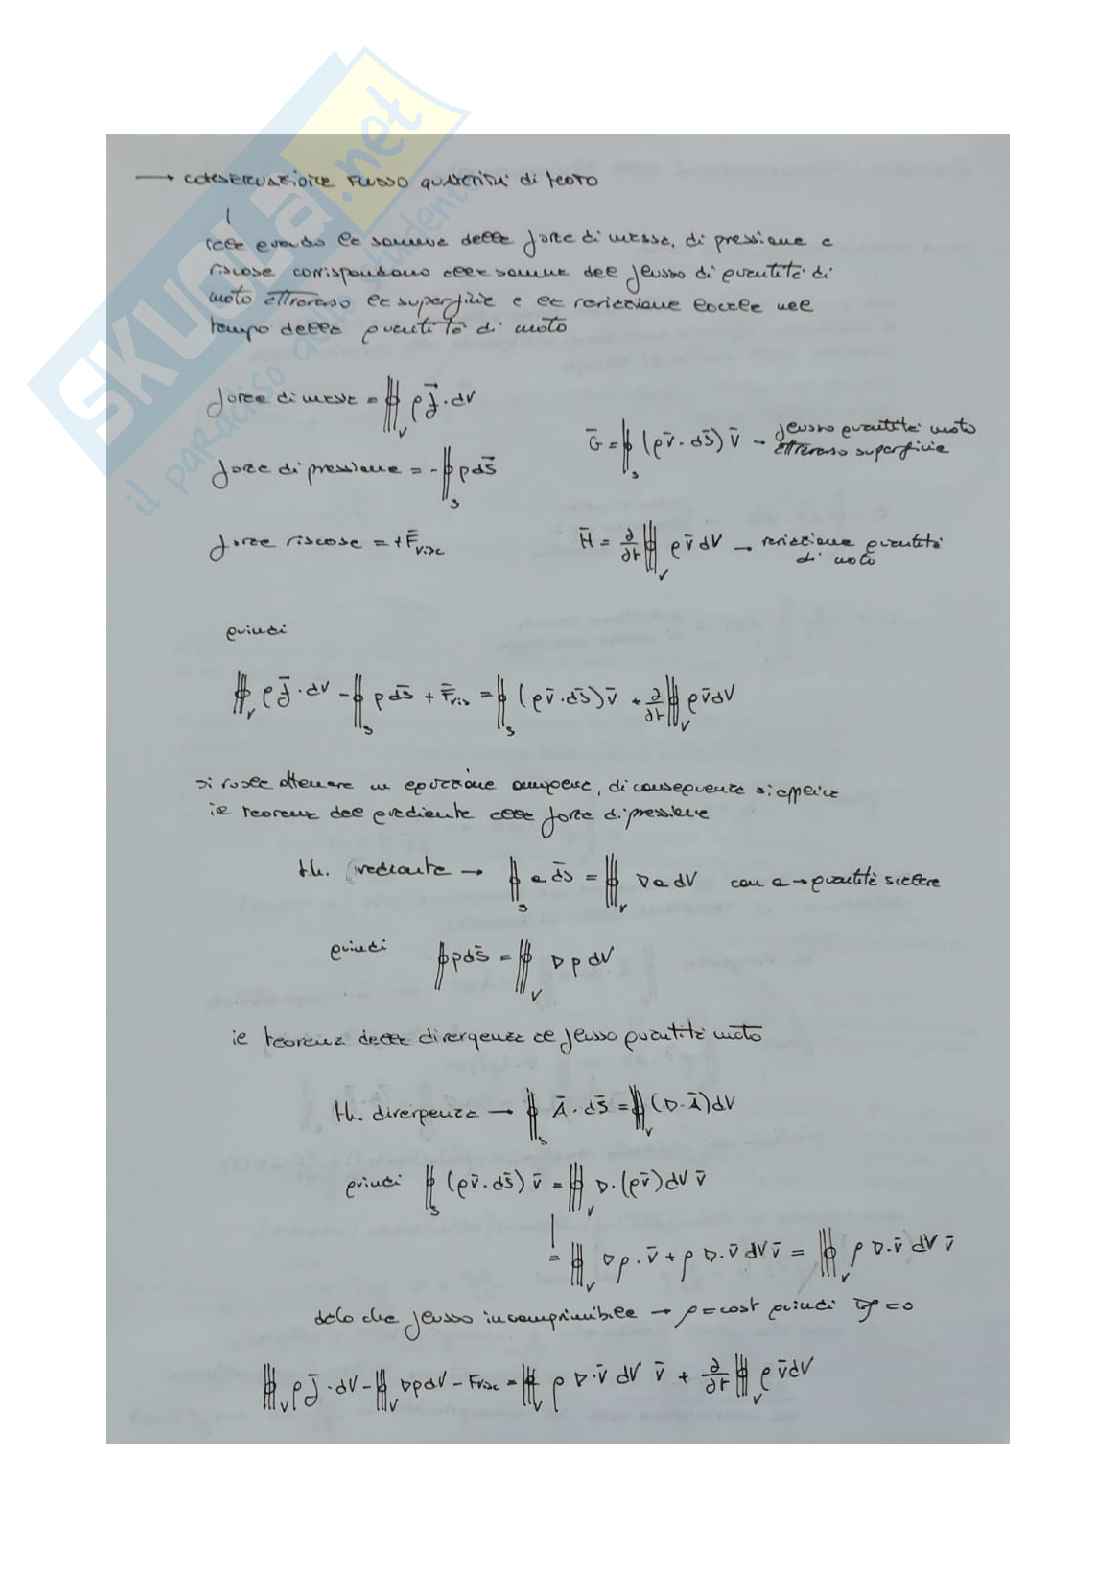 SKUOLA.net
il paradiso dello studente
→ CONSERVAZIONE FLUSSO QUANTITÀ di MOTO
la somma delle forze di massa, di pressione e
viscose corrispondano alla somma del flusso di quantità di
moto attraverso la superficie e la variazione locale nel
tempo della quantità di moto
forze di massa = ∰_V ρ f̄ · dV
Ḡ = ∯_S (ρv̄ · dS̄) v̄ → flusso quantità moto
attraverso superficie
forze di pressione = - ∯_S p dS̄
forze viscose = + F̄_visc
H̄ = ∂/∂t ∰_V ρ v̄ dV → variazione quantità
di moto
quindi
∰_V ρ f̄ · dV - ∯_S p dS̄ + F̄_vis = ∯_S (ρv̄ · dS̄) v̄ + ∂/∂t ∰_V ρ v̄ dV
si vuole ottenere un equazione omogenea, di conseguenza si applica
il teorema del gradiente alle forze di pressione
th. gradiente → ∯_S a dS̄ = ∰_V ∇a dV con a → quantità scalare
quindi ∯ p dS̄ = ∰_V ∇p dV
il teorema della divergenza al flusso quantità moto
th. divergenza → ∯_S Ā · dS̄ = ∰_V (∇·Ā) dV
quindi ∯_S (ρv̄ · dS̄) v̄ = ∰_V ∇·(ρv̄) dV v̄
= ∰_V ∇ρ · v̄ + ρ ∇·v̄ dV v̄ = ∰_V ρ ∇·v̄ dV v̄
dato che flusso incomprimibile → ρ = cost quindi ∇ρ = 0
∰_V ρ f̄ · dV - ∰_V ∇p dV - F_visc = ∰_V ρ ∇·v̄ dV v̄ + ∂/∂t ∰_V ρ v̄ dV